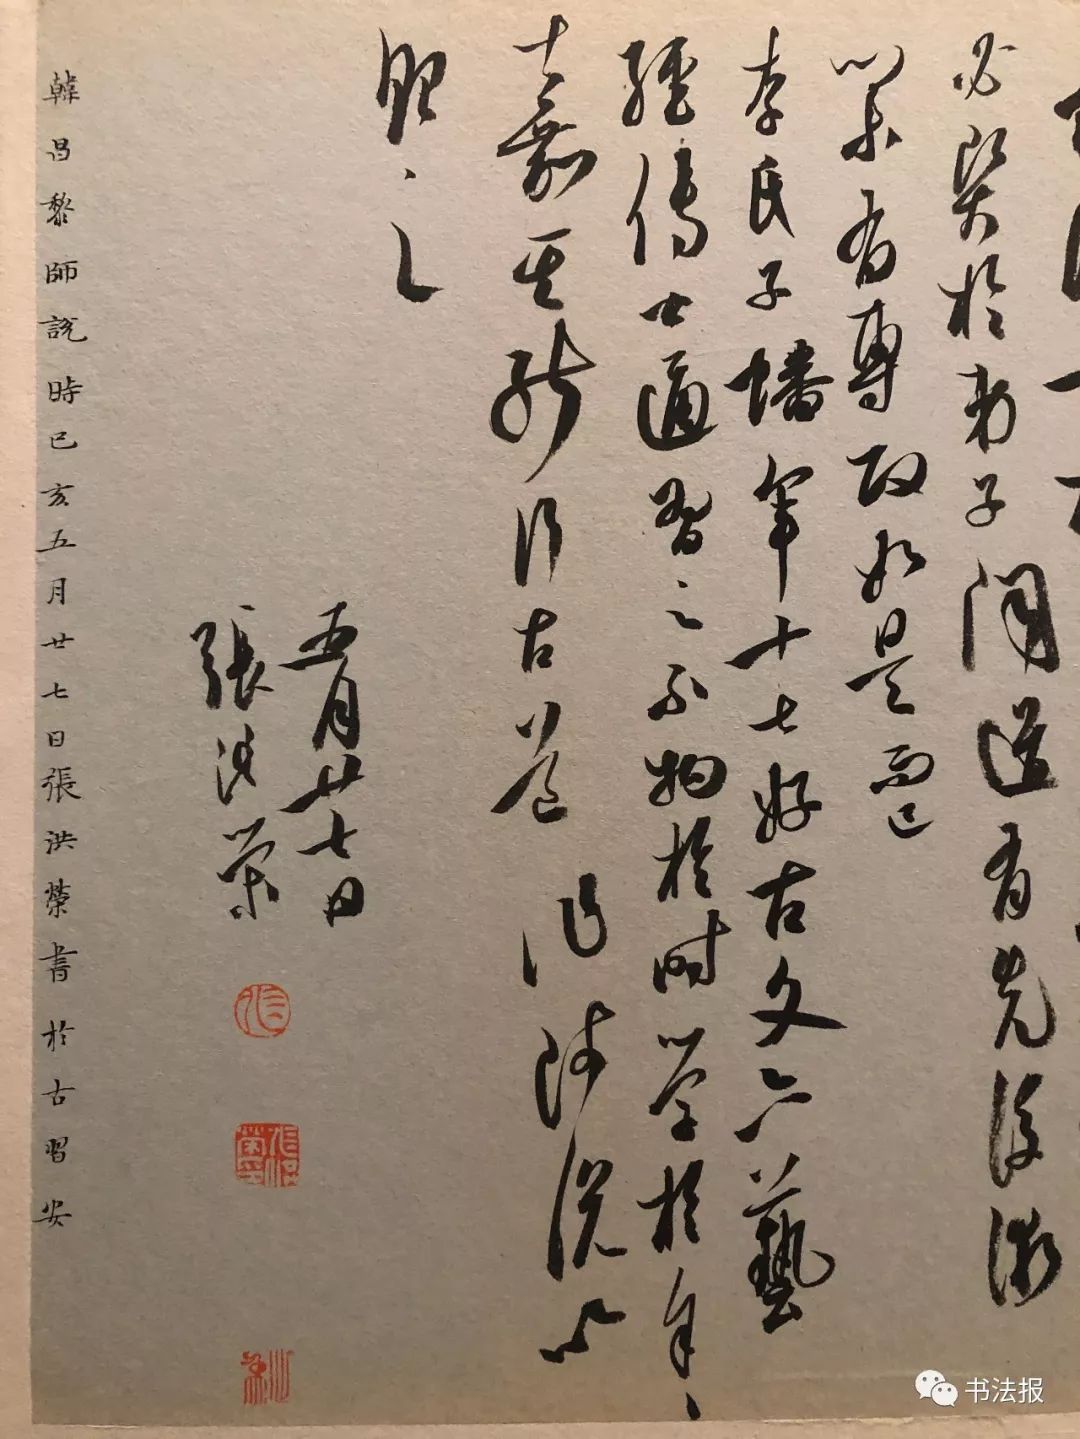 必賢於弟子聞道有先後術
業有專攻如是而已
李氏子蟠年十七好古文六藝
經傳皆通習之不拘於時學於
嘉其能行古道作師說以
貽之
五月廿七日
張洪榮
韓昌黎師說時己亥五月廿七日張洪榮書於古習安
书法报